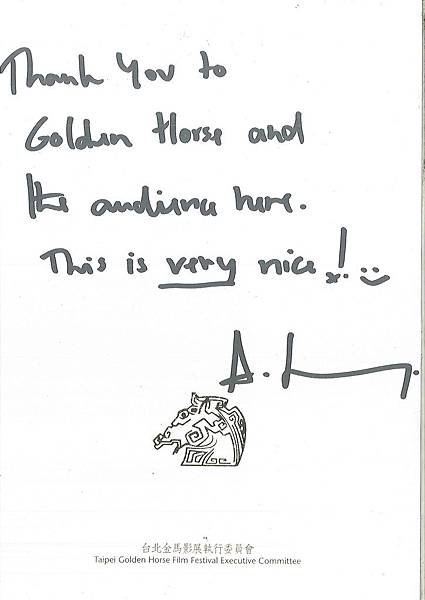 Thank You to
Golden Horse and
the audience here.
This is very nice! :)
台北金馬影展執行委員會
Taipei Golden Horse Film Festival Executive Committee